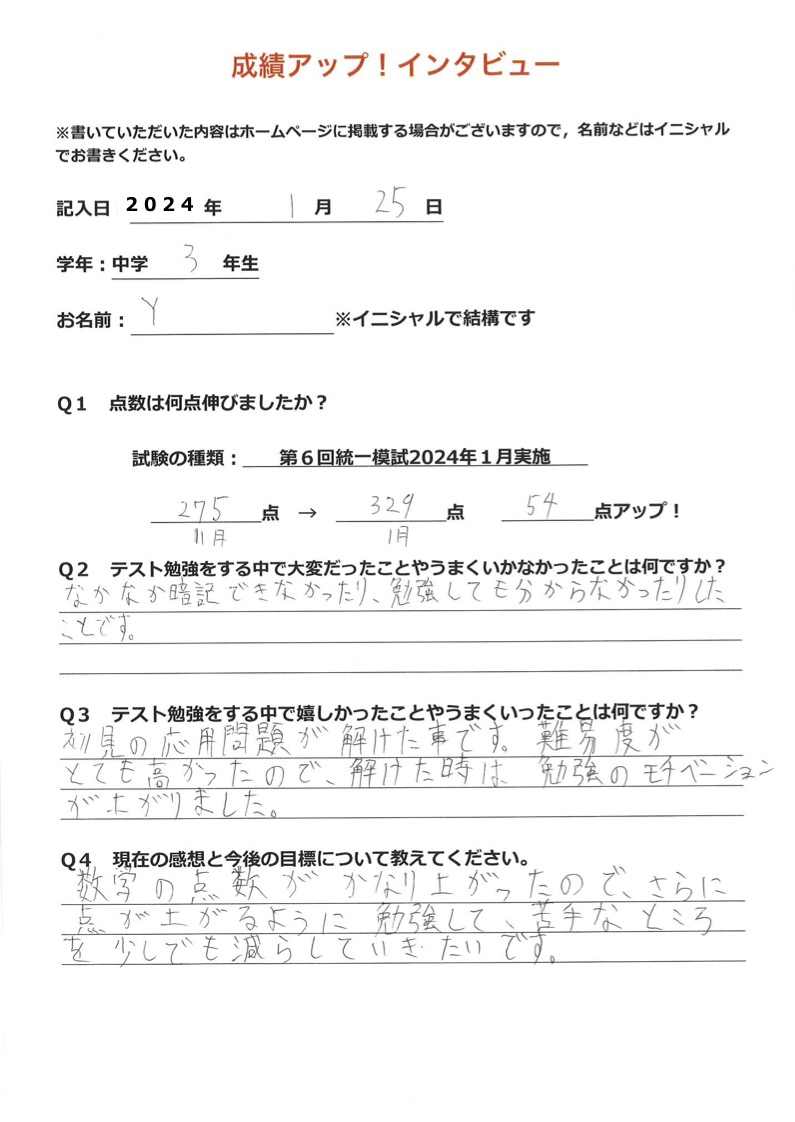 成績アップ！インタビュー
※書いていただいた内容はホームページに掲載する場合がございますので，名前などはイニシャル
でお書きください。
記入日 2024 年 1 月 25 日
学年：中学 3 年生
お名前： Y ※イニシャルで結構です
Q1 点数は何点伸びましたか？
試験の種類： 第６回統一模試2024年１月実施
275 点 → 329 点 54 点アップ！
11月 1月
Q2 テスト勉強をする中で大変だったことやうまくいかなかったことは何ですか？
なかなか暗記できなかったり、勉強しても分からなかったりした
ことです。
Q3 テスト勉強をする中で嬉しかったことやうまくいったことは何ですか？
初見の応用問題が解けた事です。難易度が
とても高かったので、解けた時は 勉強のモチベーション
が上がりました。
Q4 現在の感想と今後の目標について教えてください。
数学の点数がかなり上がったので、さらに
点が上がるように勉強して、苦手なところ
を少しでも減らしていきたいです。